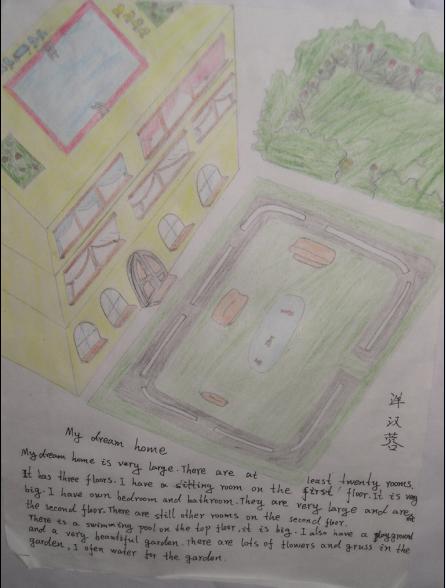 洋
汉
蓉
My dream home
My dream home is very large. There are at least twenty rooms.
It has three floors. I have a sitting room on the first floor. It is very
big. I have own bedroom and bathroom. They are very large and are at
the second floor. There are still other rooms on the second floor.
There is a swimming pool on the top floor, it is big. I also have a playground
and a very beautiful garden. There are lots of flowers and grass in the
garden, I ofen water for the garden.